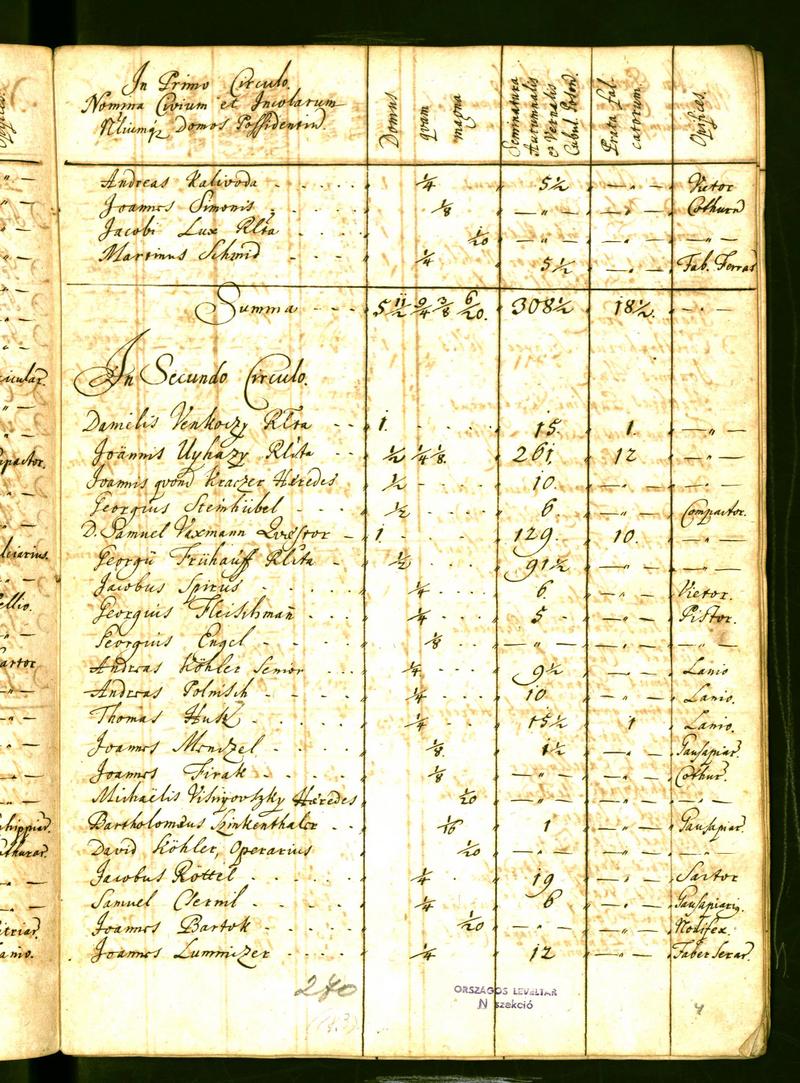 In Primo Circulo
Nomina Civium et Incolarum
Domos Possidentiu
Domus quam magna
Seminatura Autumnalis et Vernalis Cubul
Prata falcatorum
Opifices
Andreas Kalivoda " 1/4 " 5 1/2 " — " — " Vietor
Joannes Simonis " 1/8 " — " — " — " — " Cothurn
Jacobi Lux Rlta " 1/20 " — " — " — " — " — " —
Martinus Schmid " 1/4 " 5 1/2 " — " — " Fab. Ferrar
Summa 5 11/2 9/4 3/8 6/20. 308 1/2 18 1/2.
In Secundo Circulo.
Danielis Venkoczy Rlta 1. 15 1. — " —
Joannis Ujhazy Rlita 1/2 1/4 1/8. 261. 12 — " —
Joannis qvond Kraczer Hæredes 1/2 10. — " — — " —
Georgius Steinhübel 1/2 6 — " — Compactor.
D. Samuel Vaxmann Qvæstor 1 129. 10. — " —
Georgÿ Frühauff Rlita 1/2 91 1/2 — " — — " —
Jacobus Spirus 1/4 6 — " — Vietor.
Georgius Fleischman 1/4 5 — " — Pistor.
Georgius Engel 1/8 — " — — " — — " —
Andreas Köhler Senior 1/4 9 1/2 — " — Lanio
Andreas Polnisch 1/4 10 — " — Lanio.
Thomas Husk 1/4 15 1/2 1 Lanio.
Joannes Menczel 1/8. 1 1/2 — " — Gausapiar.
Joannes Firak 1/8 — " — — " — Cothur.
Michaëlis Hæredes 1/20 — " — — " — — " —
Bartholomæus Spinkenthaler 1/16 1 — " — Gausapiar.
David Köhler, Operarius 1/20 — " — — " — — " —
Jacobus Röttel 1/4 19 — " — Sartor
Samuel Clernil 1/4 6 — " — Gausapiarig
Joannes Bartok 1/20 — " — — " —
Joannes Lumnizer 1/4 12 — " — Faber Serar.
270
ORSZÁGOS LEVÉLTÁR
N szekció